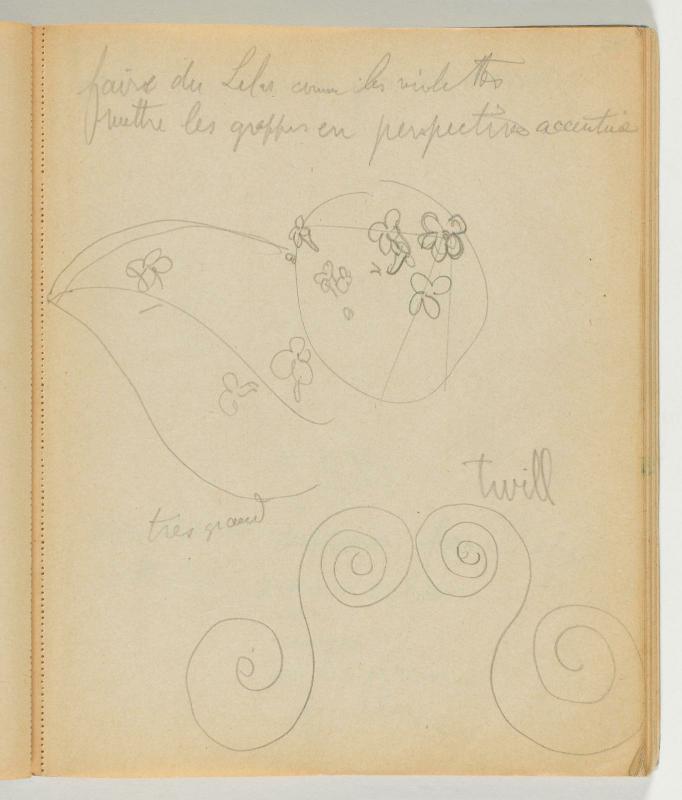 faire du Lilas comme les violettes
mettre les grappes en perspectives accentuées
twill
très grand